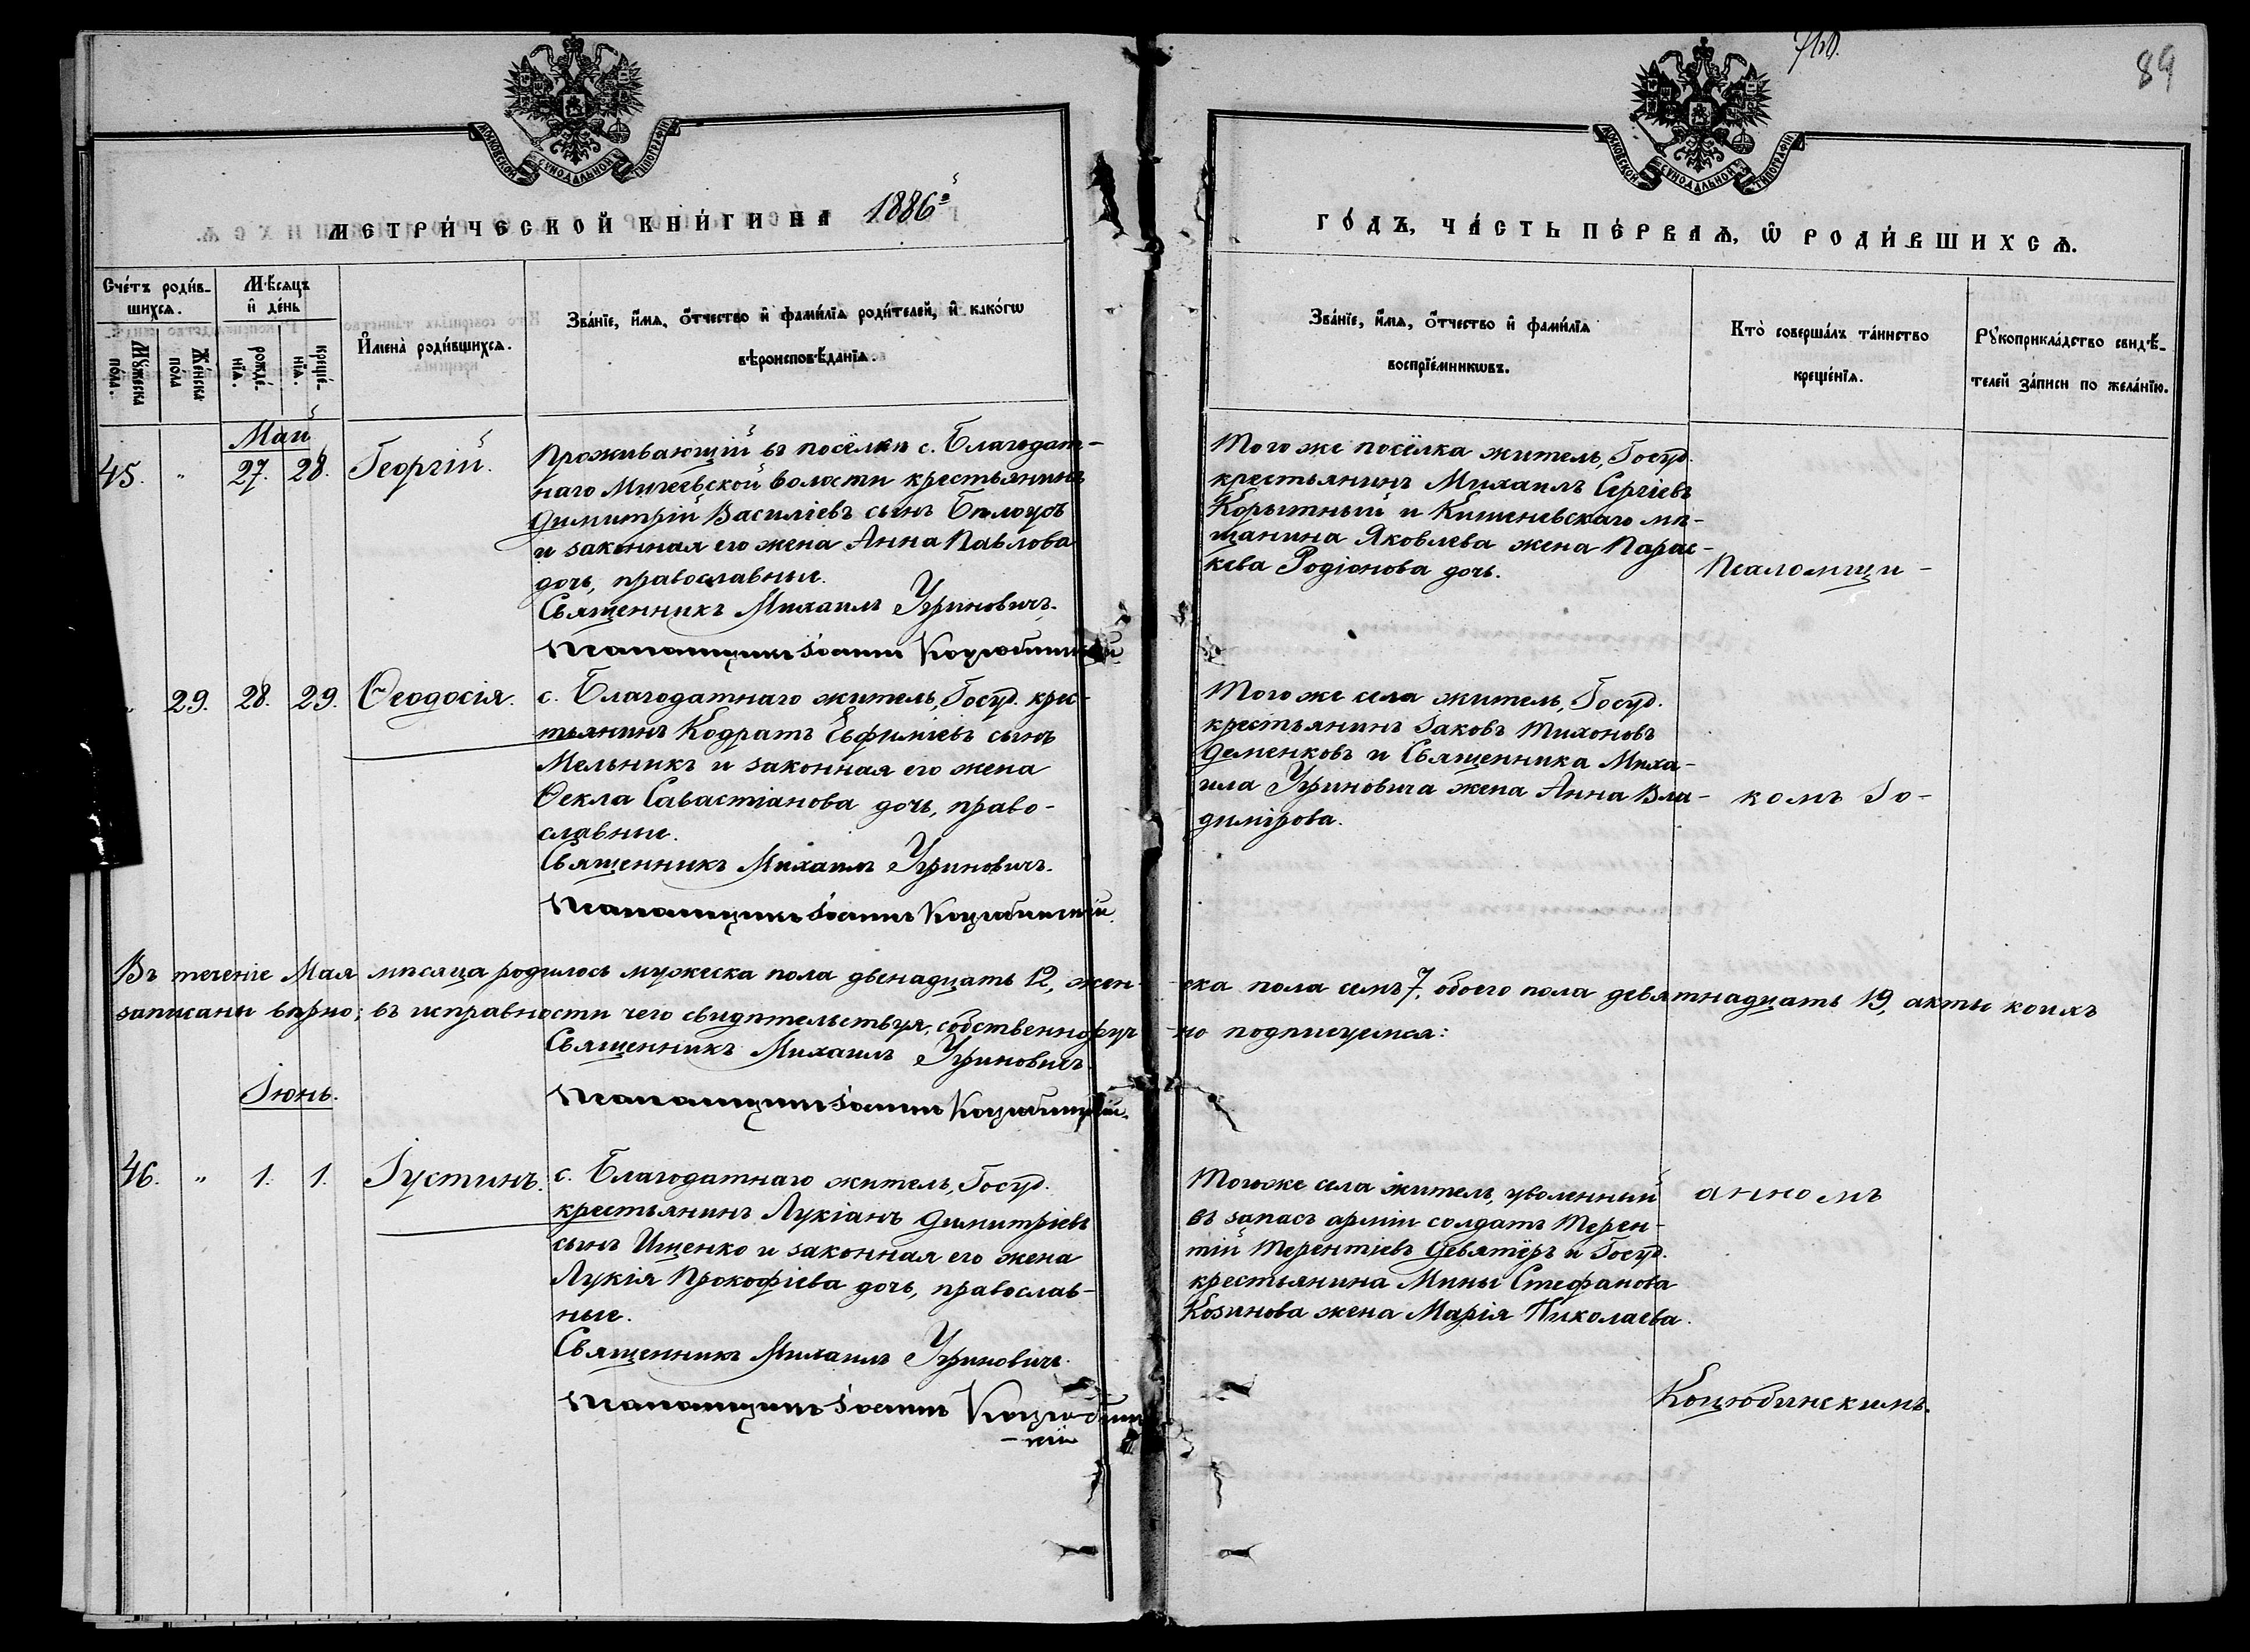 760.
89
МОСКОВСКОЙ СУНОДАЛЬНОЙ ТИПОГРАФІИ
МОСКОВСКОЙ СУНОДАЛЬНОЙ ТИПОГРАФІИ
МЕТРИ́ЧЕСКОЙ КНИ́ГИ НА 1886й
ГО́ДЪ, ЧА́СТЬ ПЕ́РВАѦ, Ѡ҆ РОДИ́ВШИХСѦ.
Сче́тъ роди́в-
шихсѧ.
Мѣ́сѧцъ
и҆ де́нь
Мꙋ́жеска
по́ла.
Же́нска
по́ла
рожде́-
нїѧ.
креще́-
нїѧ.
И҆мена̀ роди́вшихсѧ.
Зва́нїе, и҆́мѧ, ѻ҆́тчество и҆ фами́лїѧ роди́телей, и҆ како́гѡ
вѣроисповѣ́данїѧ.
Зва́нїе, и҆́мѧ, ѻ҆́тчество и҆ фами́лїѧ
воспрїе́мникѡвъ.
Кто̀ соверша́лъ та́инство
креще́нїѧ.
Рꙋкоприкла́дство свидѣ́-
телей за́писи по жела́нїю.
Май
45. " 27. 28. Георгій.
Проживающій въ посёлкѣ с. Благодат-
наго Мигеевской волости крестьянинъ
Димитрій Василіевъ сынъ Бѣлоусъ
и законная его жена Анна Павлова
дочь, православные.
Священникъ Михаилъ Угриновичъ.
Псаломщикъ Іоаннъ Коцюбинскій
Того же посёлка житель, Госуд.
крестьянинъ Михаилъ Сергіевъ
Корытный и Кишеневскаго мѣ-
щанина Яковлева жена Парас-
кева Родіонова дочь.
Псаломщи-
" 29. 28. 29. Ѳеодосія.
с. Благодатнаго житель, Госуд. крес-
тьянинъ Кодратъ Евфиміевъ сынъ
Мельникъ и законная его жена
Ѳекла Савастіанова дочь, право-
славные.
Священникъ Михаилъ Угриновичъ.
Псаломщикъ Іоаннъ Коцюбинскій.
Того же села житель, Госуд.
крестьянинъ Іаковъ Тихоновъ
Деменковъ и Священника Миха-
ила Угриновича жена Анна Вла-
димірова.
комъ Іо-
Въ теченіе Мая мѣсяца родилось мужеска пола двенадцать 12, жен-ска пола семь 7, обоего пола девятнадцать 19, акты коихъ
записаны вѣрно; въ исправности чего свидѣтельствуя, собственноруч-но подписуемся:
Священникъ Михаилъ Угриновичъ.
Псаломщикъ Іоаннъ Коцюбинскій.
Іюнь.
46. " 1. 1. Іустинъ.
с. Благодатнаго житель, Госуд.
крестьянинъ Лукіанъ Димитріевъ
сынъ Ищенко и законная его жена
Лукія Прокофіева дочь, православ-
ные.
Священникъ Михаилъ Угриновичъ.
Псаломщикъ Іоаннъ Коцюбин
-скій
Тогоже села житель, уволенный
въ запасъ арміи солдатъ Терен-
тій Терентіевъ Девятёръ и Госуд.
крестьянина Мины Стефанова
Козинова жена Марія Николаева.
анномъ
Коцюбинскимъ.